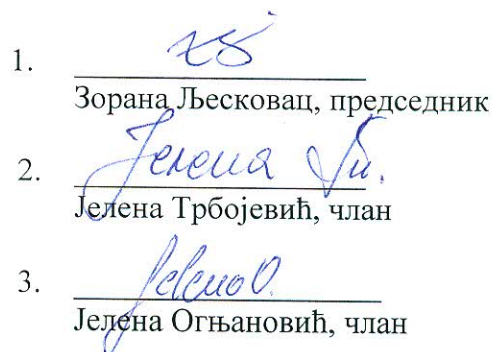 1.
Зорана Љесковац, председник
2. Јелена Тр.
Јелена Трбојевић, члан
3. Јелена О.
Јелена Огњановић, члан